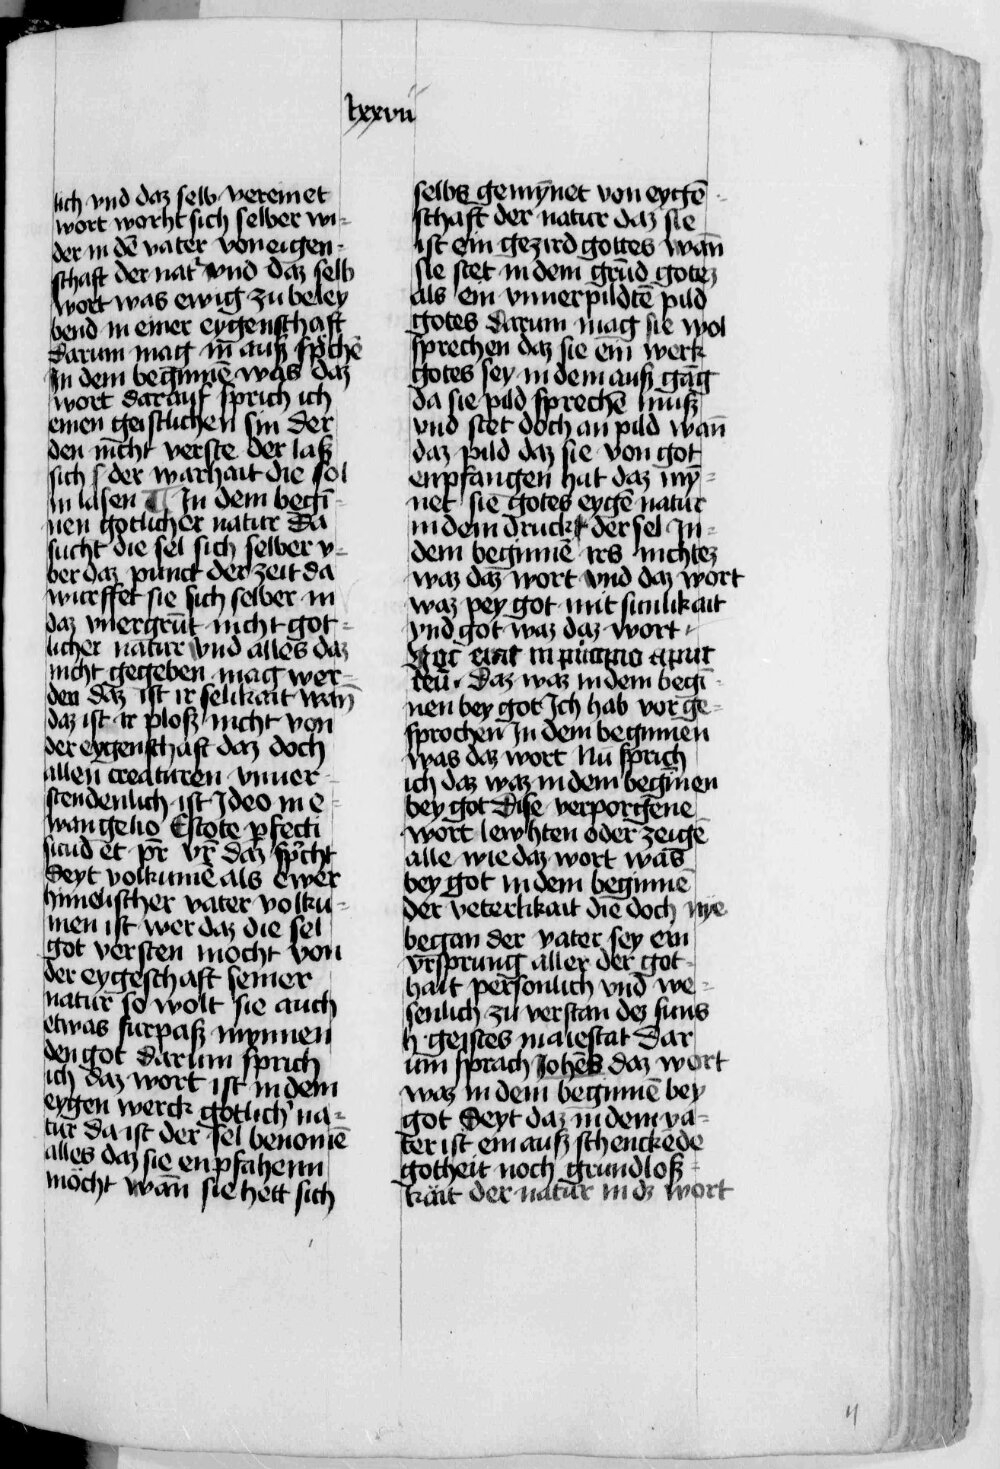 lxxvii
lich vnd daz selb vereinet
wort worht sich selber wi-
der in dē vater von eigen-
schaft der nat' vnd daz selb
wort was ewig zu beley
bend in einer eygenschaft
darum mag m̄ auß sp̄chē
In dem begīnnē was daz
wort darauf sprich ich
einen geistlichen sin der
den nicht verste der laß
sich der warhait die sol
in lasen ¶ In dem begī-
nen gotlicher natur da
sucht die sel sich selber v-
ber daz punct der zeit da
wirffet sie sich selber in
daz vnergrūt nicht got-
licher natur vnd alles daz
nicht gegeben mag wer-
den daz ist ir selikait wan̄
daz ist ir ploß nicht von
der eygenschaft daz doch
allen creaturen vnuer-
stendenlich ist Ideo in e-
wangelio Estote p̄fecti
sicud et pr̄ vr̄ daz sp̄cht
Seyt volkumē als ewer
himelischer vater volku-
men ist wer daz die sel
got versten mocht von
der eygeschaft seiner
natur so wolt sie auch
etwas furpaß mynnen
den got darum sprich
ich daz wort ist in dem
eygen werck gotlich' na-
tur da ist der sel benomē
alles daz sie enpfahenn
mocht wan̄ sie hett sich
selbs gemȳnet von eygē-
schaft der natur daz sie
ist ein gezird gottes wan̄
sie stet in dem grūd gotez
als ein vnuerpildtē pild
gotes darum mag sie wol
sprechen daz sie ein werk
gotes sey in dem auß gāg
da sie pild sprechē muß
vnd stet doch an pild wan̄
daz pild daz sie von got
enpfangen hat daz mȳ-
net sie gotes eygē natur
in dem druck der sel In-
dem beginnē irs nichtez
waz daz wort vnd daz wort
waz pey got mit sinlikait
vnd got waz daz wort
Hoc erat in principio aput
deū. Daz waz in dem begī-
nen bey got Ich hab vor ge-
sprochen In dem beginnen
was daz wort Nu sprich
ich daz waz in dem begīnen
bey got Dise verporgene
wort lewhten oder zeigē
alle wie daz wort was
bey got in dem beginnē
der veterlikait die doch nye
began der vater sey ein
vrsprung aller der got-
hait personlich vnd we-
senlich zu verstan dez suns
h geistes maiestat Dar
um sprach Johēs daz wort
waz in dem beginnē bey
got Seyt daz in dem va-
ter ist ein auß schenckede
gotheit noch grundloß-
kait der natur in dz wort